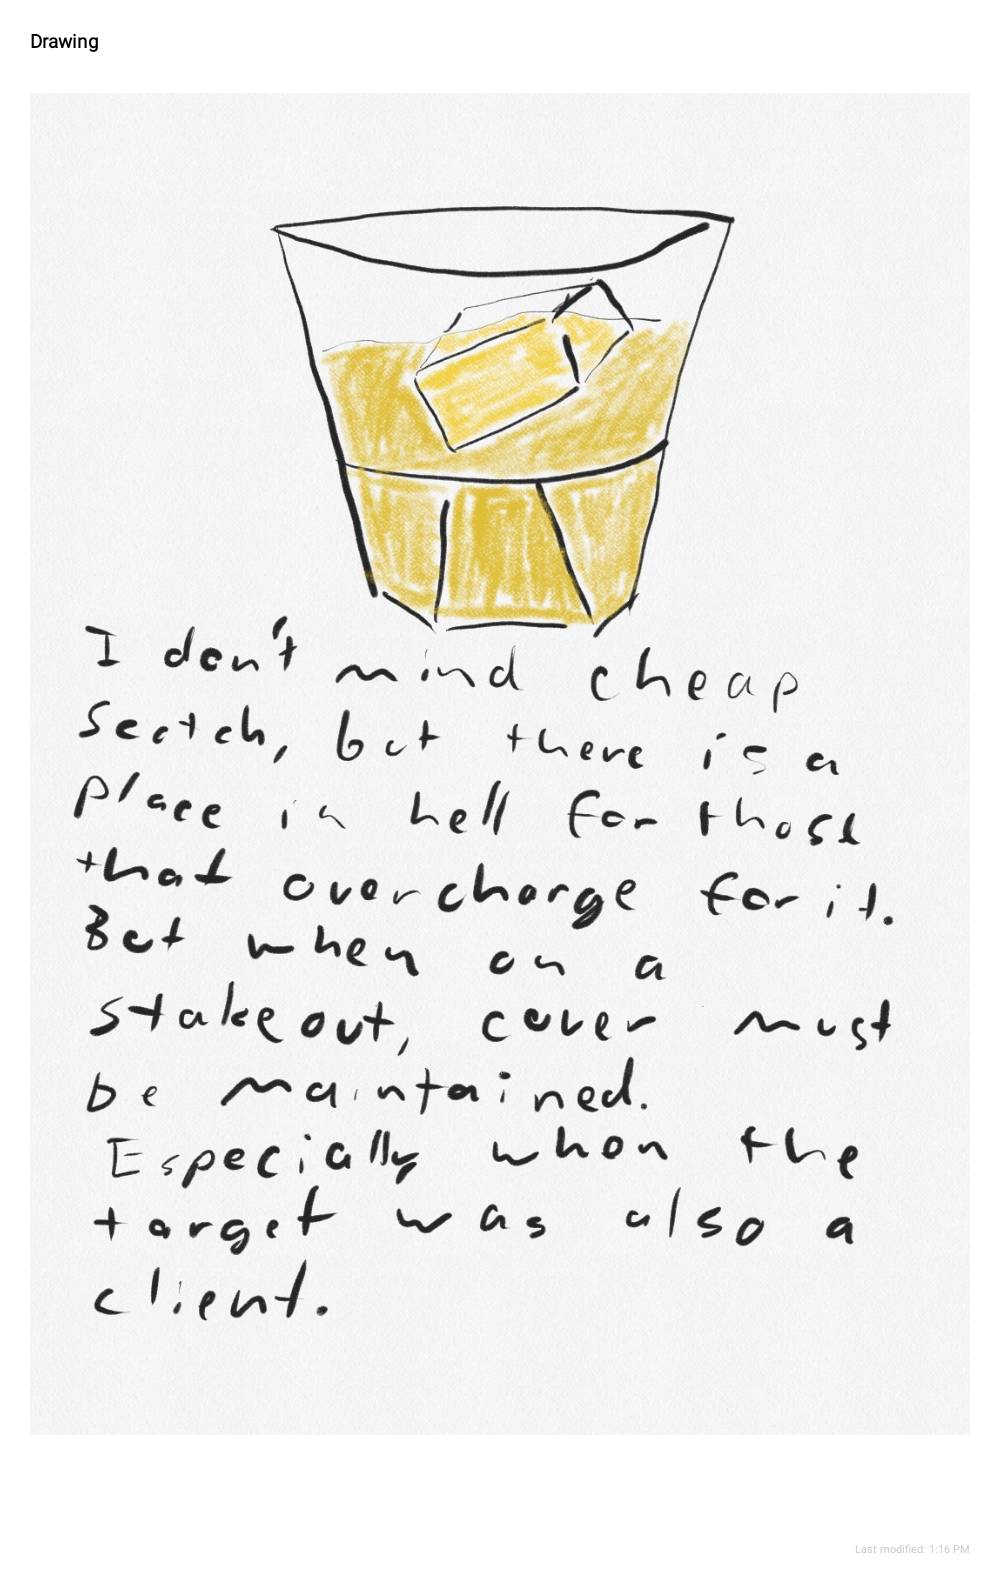 Drawing
I don't mind cheap
Scotch, but there is a
place in hell for those
that overcharge for it.
But when on a
stakeout, cover must
be maintained.
Especially when the
target was also a
client.
Last modified: 1:16 PM